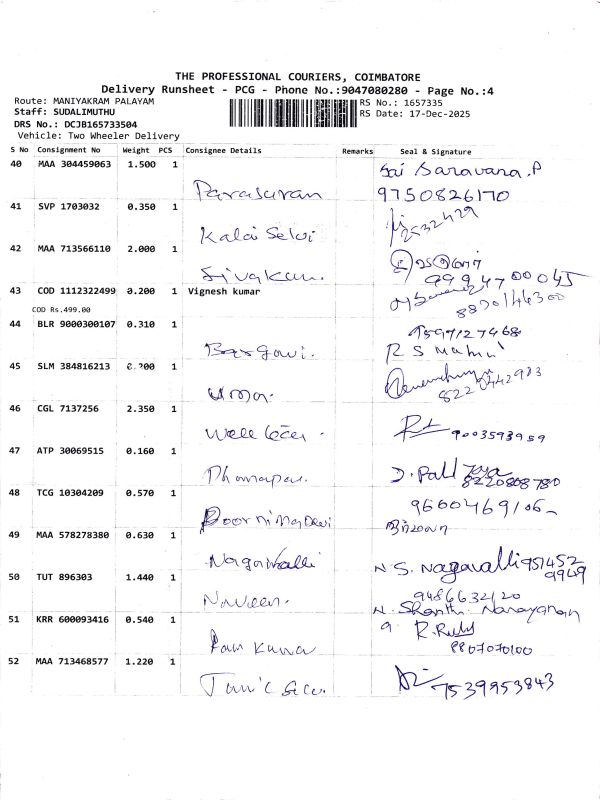 THE PROFESSIONAL COURIERS, COIMBATORE
Delivery Runsheet - PCG - Phone No.:9047080280 - Page No.:4
Route: MANIYAKRAM PALAYAM
Staff: SUDALIMUTHU
DRS No.: DCJB165733504
Vehicle: Two Wheeler Delivery
RS No.: 1657335
RS Date: 17-Dec-2025
S No Consignment No Weight PCS Consignee Details Remarks Seal & Signature
40 MAA 304459063 1.500 1 Sai Saravana.P
Parasuran 9750826170
41 SVP 1703032 0.350 1
Kalai Selvi
42 MAA 713566110 2.000 1
Sivakum. 9994700045
43 COD 1112322499 0.200 1 Vignesh kumar
COD Rs.499.00
8870146300
44 BLR 9000300107 0.310 1 9597127468
Bargavi. R S
45 SLM 384816213 0.200 1
Uma. 8220442983
46 CGL 7137256 2.350 1
9003593959
47 ATP 30069515 0.160 1
D. 8220808780
48 TCG 10304209 0.570 1 9600469106
Poornima Devi
49 MAA 578278380 0.630 1
Nagavalli N S. Nagavalli 951452
9949
50 TUT 896303 1.440 1 9486632120
Naveen. N. Shanthi Narayanan
51 KRR 600093416 0.540 1
Ram Kumar 8807070100
52 MAA 713468577 1.220 1
7539953843